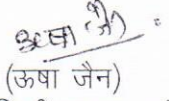 ऊषा जैन
(ऊषा जैन)